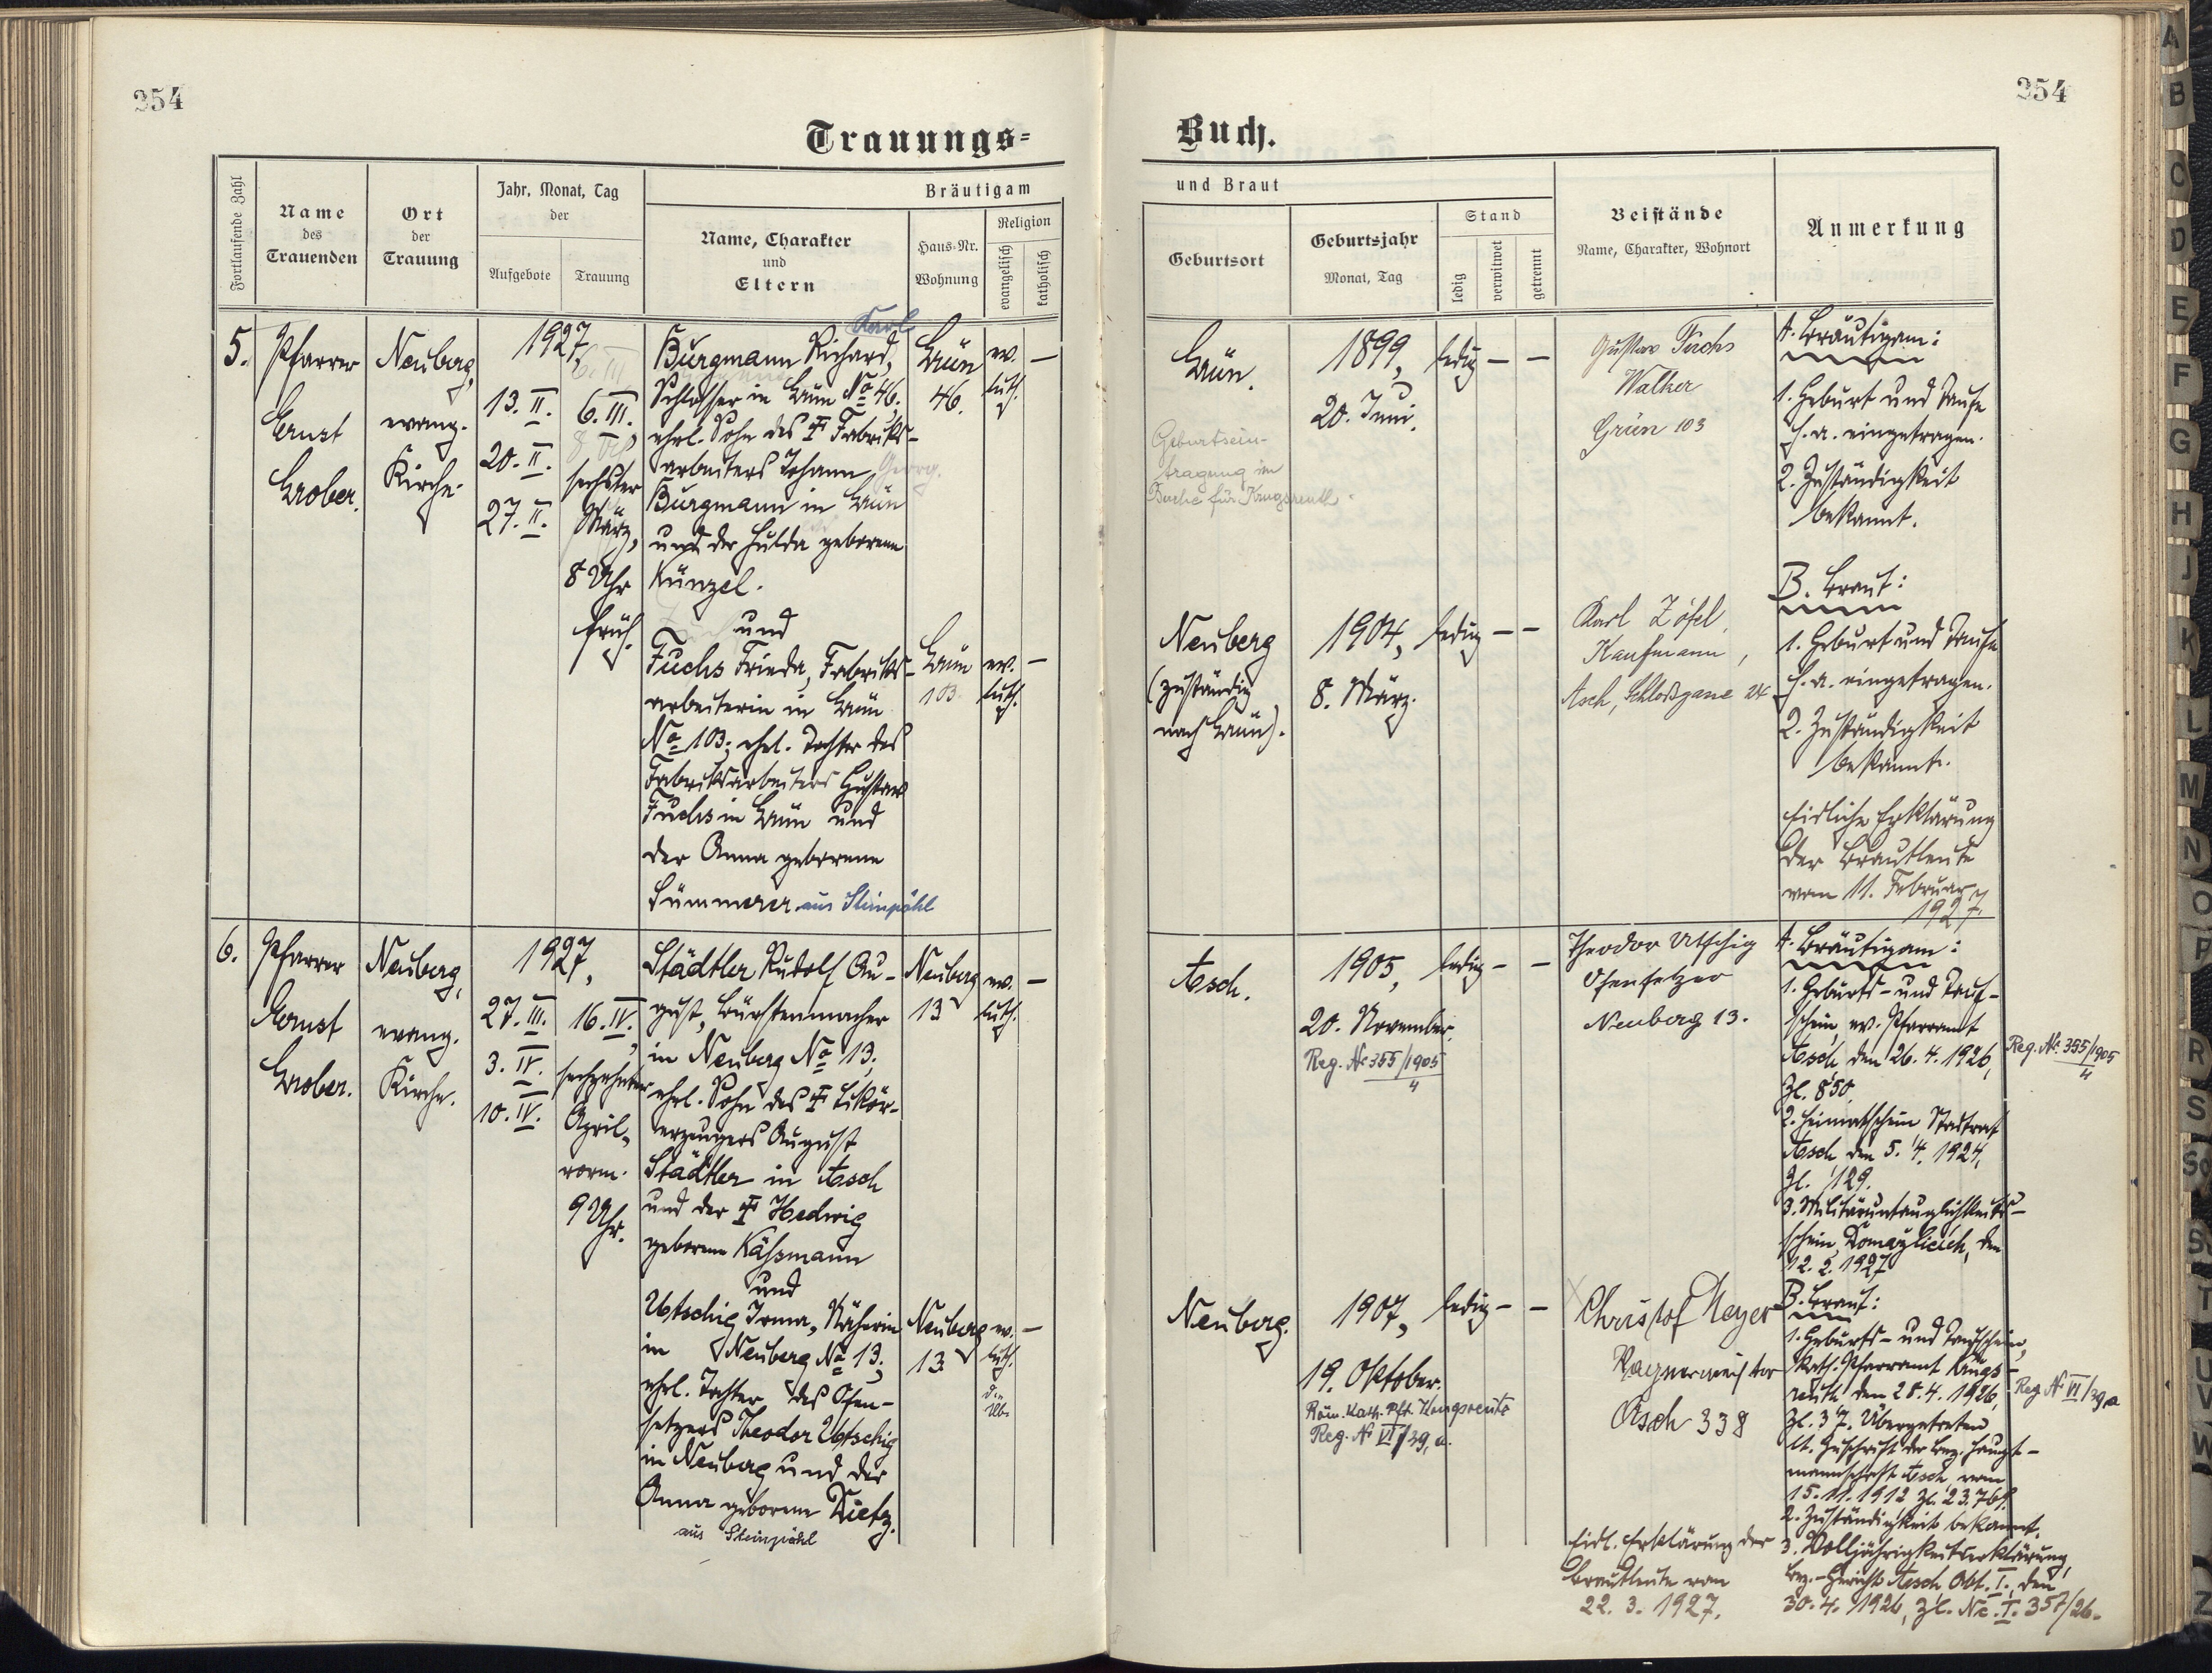 254
254
Trauungs=
Buch.
Fortlaufende Zahl
Name
des
Trauenden
Ort
der
Trauung
Jahr, Monat, Tag
der
Aufgebote
Trauung
Bräutigam
Name, Charakter
und
Eltern
Haus-Nr.
Wohnung
Religion
evangelisch
katholisch
und Braut
Geburtsort
Geburtsjahr
Monat, Tag
Stand
ledig
verwitwet
getrennt
Beistände
Name, Charakter, Wohnort
Anmerkung
5.
Pfarrer
Ernst
Grober.
Neuberg,
evang.
Kirche.
1927,
13. II.
20. II.
27. II.
6. III.
sechster
März,
8 Uhr
früh.
Karl
Burgmann Richard,
Schlosser in Grün No 46,
ehel. Sohn des † Fabriks-
arbeiters Johann Georg.
Burgmann in Grün
und der Hulda geborene
Künzel.
und
Fuchs Frieda, Fabriks-
arbeiterin in Grün
No 103; ehel. Tochter des
Fabriksarbeiters Gustav
Fuchs in Grün und
der Anna geborene
Sümmerer aus Steinpöhl
Grün
46.
ev.
luth.
—
Grün
103
ev.
luth.
—
Grün.
Geburtsein-
tragung im
Buche für
1899,
20. Juni.
ledig — —
Gustav Fuchs
Walker
Grün 103
Neuberg
(zuständig
nach Grün).
1904,
8. März.
ledig — —
Karl Zöfel,
Kaufmann,
Asch, Schloßgasse 24
A. Bräutigam:
1. Geburt und Taufe
h. a. eingetragen.
2. Zuständigkeit
bekannt.
B. Braut:
1. Geburt und Taufe
h. a. eingetragen.
2. Zuständigkeit
bekannt.
Eidliche Erklärung
der Brautleute
vom 11. Februar
1927.
6.
Pfarrer
Ernst
Grober.
Neuberg,
evang.
Kirche.
1927,
27. III.
3. IV.
10. IV.
16. IV.,
sechzehnter
April,
vorm.
9 Uhr.
Städtler Rudolf Au-
gust, Bürstenmacher
in Neuberg No 13;
ehel. Sohn des † Likör-
erzeugers August
Städtler in Asch
und der † Hedwig
geborene Käßmann
und
Utschig Irma, Näherin
in Neuberg No 13;
ehel. Tochter des Ofen-
setzers Theodor Utschig
in Neuberg und der
Anna geborene Dietz.
aus Steinpöhl
Neuberg
13
ev.
luth.
—
Neuberg
13
ev.
luth.
—
Asch.
1905,
20. November.
Reg. No 355/1905
ledig — —
Theodor Utschig
Ofensetzer
Neuberg 13.
Neuberg.
1907,
19. Oktober.
Röm. kath. Pft. Krugsreuth
Reg. No VI/39, a.
ledig — —
Christof Meyer
Wagnermeister
Asch 338
A. Bräutigam:
1. Geburts- und Tauf-
schein, ev. Pfarramt
Asch, den 26. 4. 1926,
Zl. 850.
2. Heimatschein Stadtrat
Asch den 5. 4. 1924,
Zl. 129.
3. Militäruntauglichkeits-
schein, den
12. 2. 1927
Reg. No. 355/1905
B. Braut:
1. Geburts- und Taufschein,
kath. Pfarramt Krugs-
reuth den 28. 4. 1926,
Zl. 37. Übergetreten
lt. Zuschrift der Bez. Haupt-
mannschaft Asch vom
15. 11. 1912 Zl.
2. Zuständigkeit bekannt.
3. Volljährigkeitserklärung,
Bez.-Gericht Asch Abt. I., den
30. 4. 1926, Zl. Nc. I. 357/26.
Reg No VI/39,a
Eidl. Erklärung der
Brautleute vom
22. 3. 1927.
A
B
C
D
E
F
G
H
J
K
L
M
N
O
P
R
S
Sch
St
T
U
V
W
Z